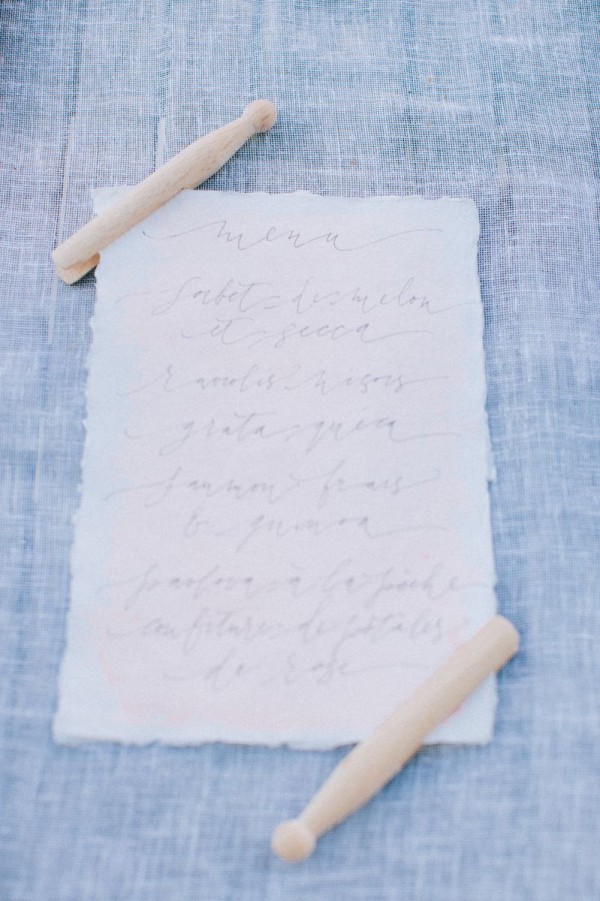 menu
Sorbet de melon
et secca
raviolis niçois
grata quica
Saumon frais
& quinoa
pavlova à la pêche
confiture de pétales
de rose